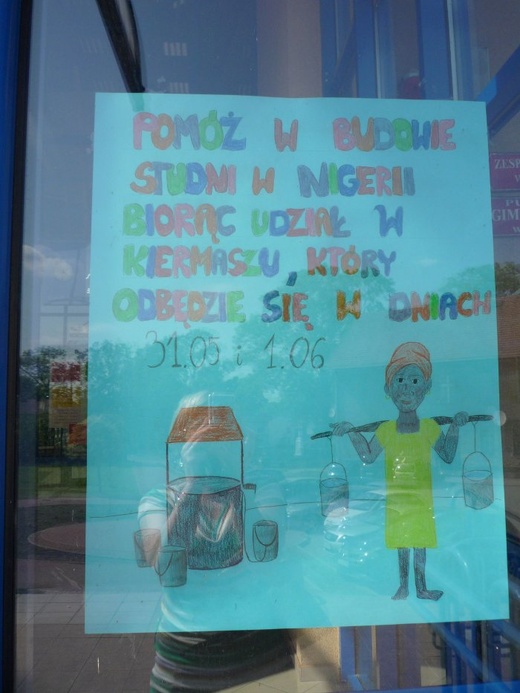 POMÓŻ W BUDOWIE
STUDNI W NIGERII
BIORĄC UDZIAŁ W
KIERMASZU, KTÓRY
ODBĘDZIE SIĘ W DNIACH
31.05 i 1.06
ZES
GIM